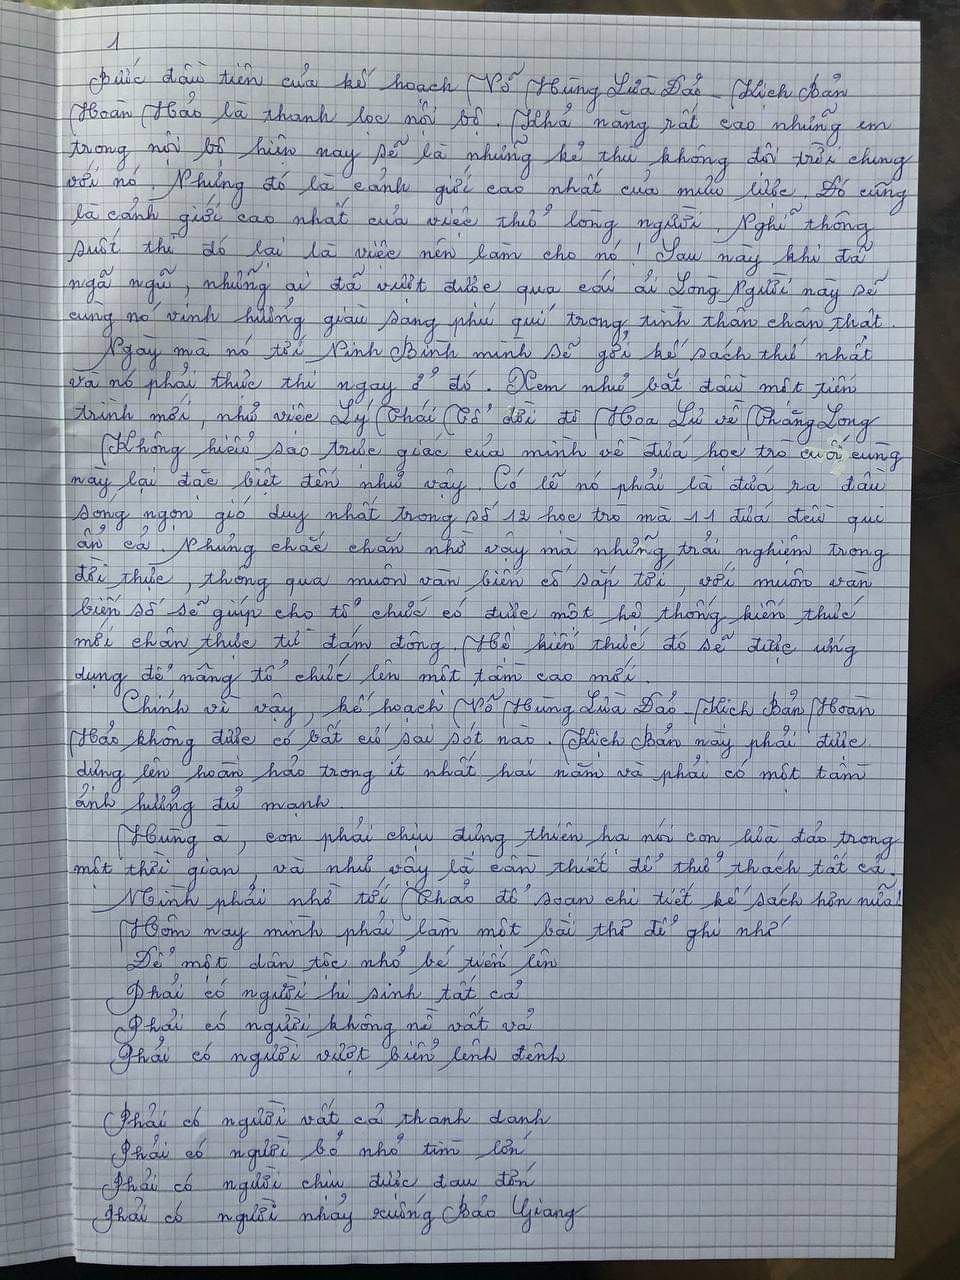 1
Bước đầu tiên của kế hoạch Võ Hùng Lừa Đảo - Kịch Bản
Hoàn Hảo là thanh lọc nội bộ. Khả năng rất cao những em
trong nội bộ hiện nay sẽ là những kẻ thù không đội trời chung
với nó. Nhưng đó là cảnh giới cao nhất của mưu lược. Đó cũng
là cảnh giới cao nhất của việc thử lòng người. Nghĩ thông
suốt thì đó lại là việc nên làm cho nó! Sau này khi đã
ngã ngũ, những ai đã vượt được qua cái ải Lòng Người này sẽ
cùng nó vinh hưởng giàu sang phú quí trong tinh thần chân thật.
Ngày mà nó tới Ninh Bình mình sẽ gởi kế sách thứ nhất
và nó phải thực thi ngay ở đó. Xem như bắt đầu một tiến
trình mới, như việc Lý Thái Tổ dời đô Hoa Lư về Thăng Long
Không hiểu sao trực giác của mình về đứa học trò cuối cùng
này lại đặc biệt đến như vậy. Có lẽ nó phải là đứa ra đầu
sóng ngọn gió duy nhất trong số 12 học trò mà 11 đứa đều qui
ẩn cả. Nhưng chắc chắn nhờ vậy mà những trải nghiệm trong
đời thực, thông qua muôn vàn biến cố sắp tới, với muôn vàn
biến số sẽ giúp cho tổ chức có được một hệ thống kiến thức
mới chân thực từ đám đông. Hệ kiến thức đó sẽ được ứng
dụng để nâng tổ chức lên một tầm cao mới.
Chính vì vậy, kế hoạch Võ Hùng Lừa Đảo - Kịch Bản Hoàn
Hảo không được có bất cứ sai sót nào. Kịch Bản này phải được
dựng lên hoàn hảo trong ít nhất hai năm và phải có một tầm
ảnh hưởng đủ mạnh.
Hùng à, con phải chịu đựng thiên hạ nói con lừa đảo trong
một thời gian, và như vậy là cần thiết để thử thách tất cả.
Mình phải nhờ tới Thảo để soạn chi tiết kế sách hơn nữa!
Hôm nay mình phải làm một bài thơ để ghi nhớ
Để một dân tộc nhỏ bé tiến lên
Phải có người hi sinh tất cả
Phải có người không nề vất vả
Phải có người vượt biển lênh đênh
Phải có người vất cả thanh danh
Phải có người bỏ nhỏ tìm lớn
Phải có người chịu được đau đớn
Phải có người nhảy xuống Bảo Giang